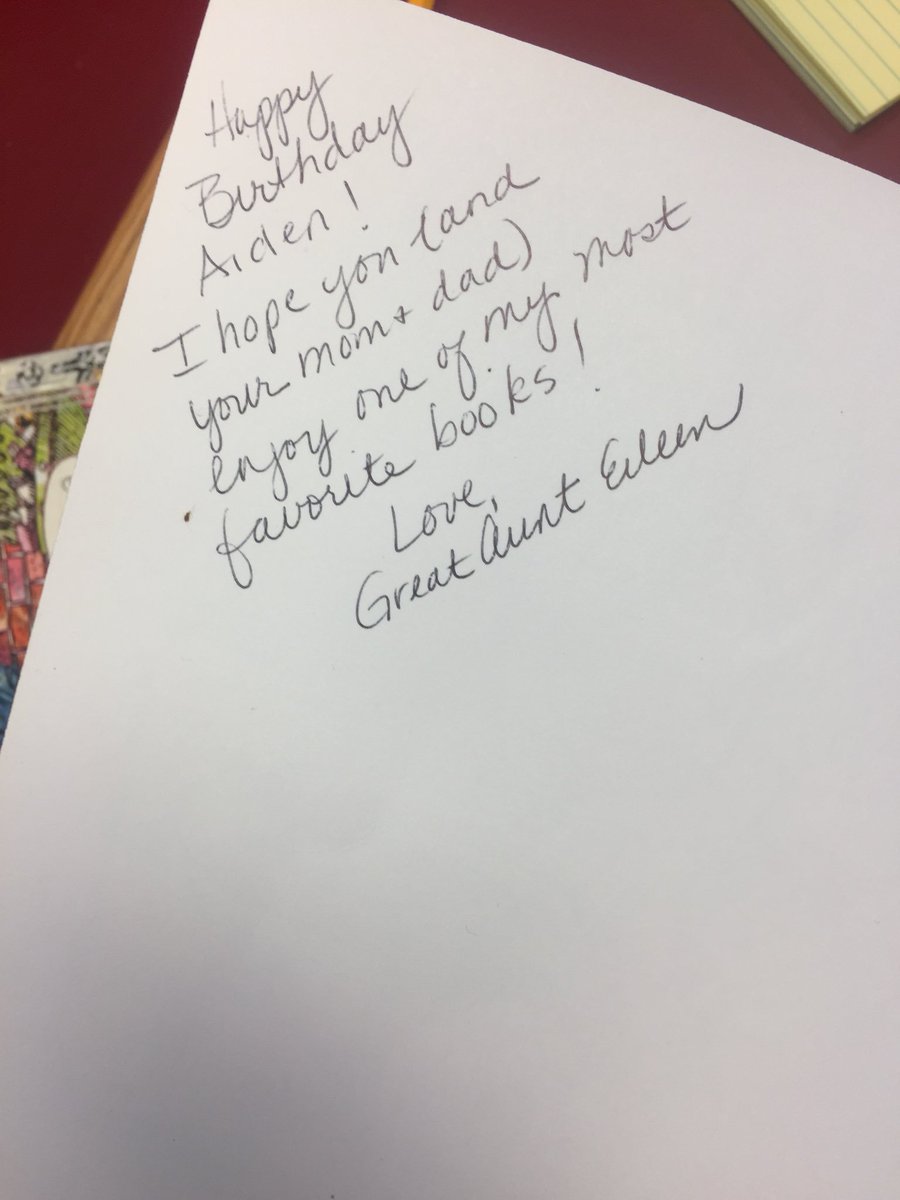 Happy
Birthday
Aiden!
I hope you (and
your mom + dad)
enjoy one of my most
favorite books!
Love,
Great Aunt Eileen